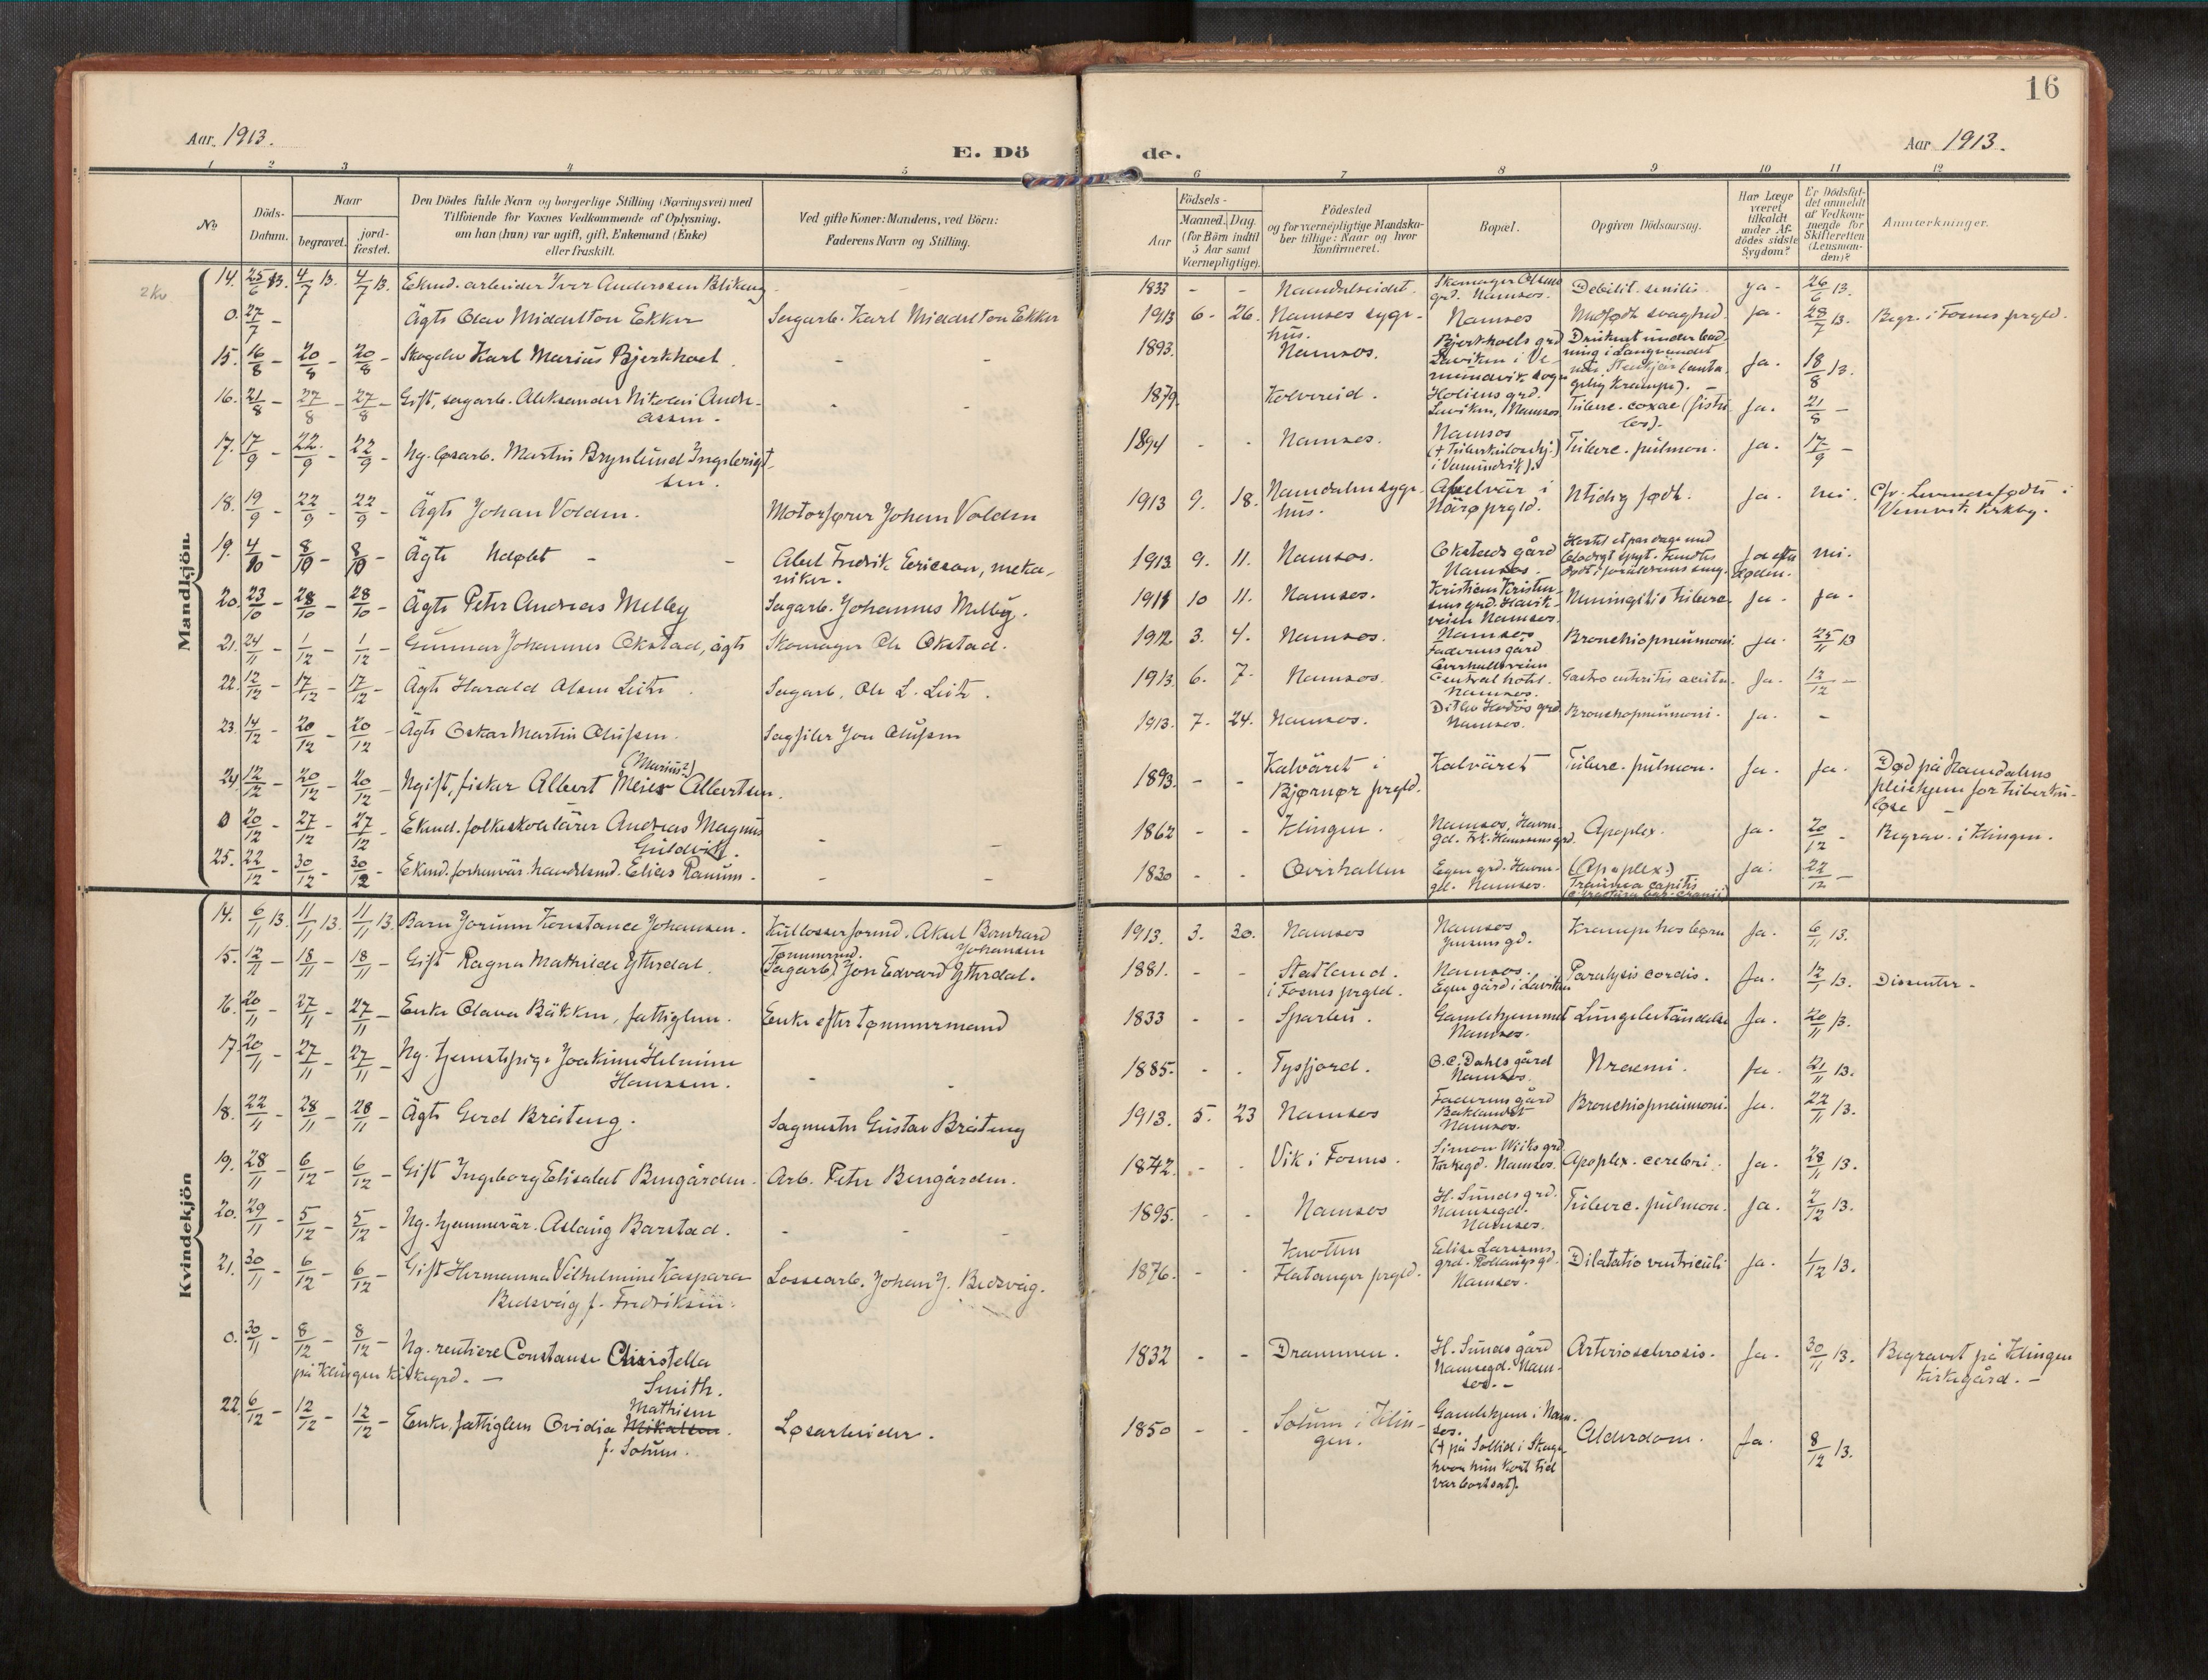 16
Aar 1913.
E. Dö
de.
Aar 1913.
1 2 3 4 5 6 7 8 9 10 11 12
No.
Döds-Datum.
Naar
begravet.
jord-fæstet.
Den Dödes fulde Navn og borgerlige Stilling (Næringsvei) med
Tilföiende for Voxnes Vedkommende af Oplysning,
om han (hun) var ugift, gift, Enkemand (Enke)
eller fraskilt.
Ved gifte Koner: Mandens, ved Börn:
Faderens Navn og Stilling.
Födsels-
Aar
Maaned. Dag.
(for Börn indtil
5 Aar samt
Værnepligtige).
Födested
og for værnepligtige Mandska-
ber tillige: Naar og hvor
konfirmeret.
Bopæl.
Opgiven Dödsaarsag.
Har Læge
været
tilkaldt
under Af-
dödes sidste
Sygdom?
Er Dödsfal-
det anmeldt
af Vedkom-
mende for
Skifteretten
(Lensman-
den)?
Anmerkninger.
2 Kv.
Mandkjön.
14. 25/6 13. 4/7 13. 4/7 13. Ekmd. arbeider Iver Anderssen Blikeng - - 1833 - - Namdalseidet. Skomager Olsens grd. Namsos. Debilit. senilis. ja - 26/6 13.
0. 27/7 - Ägte Olav Middelton Ekker Sagarb. Karl Middelton Ekker 1913 6. 26. Namsos syge-hus. Namsos Medfødt svaghed. Ja. 28/7 13. Begr. i Fosnes prgld.
15. 16/8 - 20/8 - 20/8 - Skogelev Karl Marius Bjerkhoel. - - 1893. Namsos. Bjerkhoels grd Laviken i Ve-mundvik sogn Druknet under bad-ning i Langvandet nær Stenkjær (anta-gelig krampe). - Ja. 18/8 13.
16. 21/8 - 27/8 - 27/8 - Gift, sagarb. Aleksander Nikolai Andre-assen. - - 1879. Kolvereid. Holiens grd. Laviken, Namsos Tuberc. coxae Ja. 21/8 -
17. 17/9 - 22/9 - 22/9 - Ug. løsarb. Martin Brynlund Ingebrigt-sen. 1894 - - Namsos. Namsos i Vemundvik). Tuberc. pulmon. Ja. 17/9 -
18. 19/9 - 22/9 - 22/9 - Ägte Johan Volden. Motorfører Johan Volden 1913 9. 18. Namdalens syge-hus. Abelvär i Närø prgld. Utidig født. Ja. nei. Cfr. Levendefødte i
19. 4/10 - 8/10 - 8/10 - Ägte Udøbt - - Abel Fredrik Ericson, meka-niker. 1913 9. 11. Namsos. Okstads gård Namsos. Hostet et par dage med blodigt spyt. Fandtes død i forældrenes seng. Ja efter døden. nei.
20. 23/10 - 28/10 - 28/10 - Ägte Peter Andreas Melby Sagarb. Johannes Melby. 1911 10 11. Namsos. Kristian Kristen-sens grd. Havik-veien Namsos. Meningitis tuberc. Ja. Ja.
21. 24/11 - 1/12 - 1/12 - Gunnar Johannes Okstad, ägte Skomager Ole Okstad. 1912 3. 4. Namsos. Namsos Faderens gård Bronchiopneumoni. Ja. 25/11 13
22. 12/12 - 17/12 - 17/12 - Ägte Harald Olsen Leite. Sagarb. Ole L. Leite. 1913. 6. 7. Namsos. Overhallsveien Central hotel. Namsos. Gastro enteritis acuta. Ja. 12/12 -
23. 14/12 - 20/12 - 20/12 - Ägte Oskar Martin Olufsen. Sagfiler Jon Olufsen 1913. 7. 24. Namsos. Ditlev Hodøs grd Namsos. Bronchopneumoni. Ja. -
24. 12/12 - 20/12 - 20/12 - Ugift, fisker Albert Meier (Marius?) Albertsen. - - 1893. - - Kalväret i Bjørnør prgld. Kalväret Tuberc. pulmon. Ja. Ja. Død på Namdalens pleiehjem for tuberku-løse -
0 20/12 - 27/12 - 27/12 - Ekmd. folkeskolelärer Andreas Magnus Guldvik. - - 1862 - - Klingen. Namsos, Havne-gd. Fr. Hanssens grd. Apoplex. Ja. 20/12 - Begrav. i Klingen.
25. 22/12 - 30/12 - 30/12 - Ekmd. forhenvär. handelsmd. Elias Ranum. - - 1830 - - Overhallen Egen grd. Havne-gd. Namsos. (Apoplex.) Trauma capitis (c. fractura bas. cranii) Ja. 22/12 -
Kvindekjön
14. 6/11 13. 11/11 13. 11/11 13. Barn Jorunn Konstance Johansen. Kullosserformd. Aksel Bernhard Johansen 1913. 3. 30. Namsos Namsos Jensens gd. Krampe hos børn Ja. 6/11 13.
15. 12/11 - 18/11 - 18/11 - Gift Ragna Mathilde Ytterdal. Tømmermd. (Sagarb.) Jon Edvard Ytterdal. 1881. - - Statland. i Fosnes prgld. Namsos. Egen gård i Laviken Paralysis cordis. Ja. 12/11 13. Dissenter -
16. 20/11 - 27/11 - 27/11 - Enke Olava Bäkken, fattiglem. Enke efter tømmermand 1833 - - Sparbu. Gamlehjemmet Namsos. Lungebetändelse Ja. 20/11 13.
17. 20/11 - 27/11 - 27/11 - Ug. tjenestepige Joakime Helmine Hanssen. - - 1885. - - Tysfjord. O.C. Dahls gård Namsos. Uraemi. Ja. 21/11 13.
18. 22/11 - 28/11 - 28/11 - Ägte Gerd Breiteng. Sagmester Gustav Breiteng 1913. 5. 23 Namsos Faderens gård Baklandet Namsos. Bronchiopneumoni. Ja. 22/11 13.
19. 28/11 - 6/12 - 6/12 - Gift Ingeborg Elisabet Bengården. Arb. Peter Bengården. 1842. - - Vik i Fosnes. Simon Wiiks grd. Kirkegd. Namsos. Apoplex. cerebri. Ja. 28/11 13.
20. 29/11 - 5/12 - 5/12 - Ug. hjemmevär. Aslaug Barstad. - - - 1895. - - Namsos H. Sunds grd. Namsegd. Namsos. Tuberc. pulmon. Ja. 2/12 13.
21. 30/11 - 6/12 - 6/12 - Gift Hermanna Vilhelmine Kaspara Bedsvåg f. Fredriksen. Lossearb. Johan J. Bedsvåg. 1876. - - Knotten Flatanger prgld. Eline Larssens grd. Namsos. Dilatatio ventriculi Ja. 1/12 13.
0. 30/11 - 8/12 - 8/12 - Ug. rentiere Constanse Christella Smith. på Klingen kirkegrd. - 1832 - - Drammen. H. Sunds gård Namsegd. Nam-sos. - Arteriosclerosis. Ja. 30/11 13. Begravet på Klingen kirkegård. -
22. 6/12 - 12/12 - 12/12 - Enke, fattiglem Ovidia Mikalsen Mathisen f. Solum. Løsarbeider. 1850 - - Solum i Klin-gen. Gamlehjem i Nam-sos. (+ på Sollid i Skage hvor hun kort tid var bortsat). Alderdom. Ja. 8/12 13.